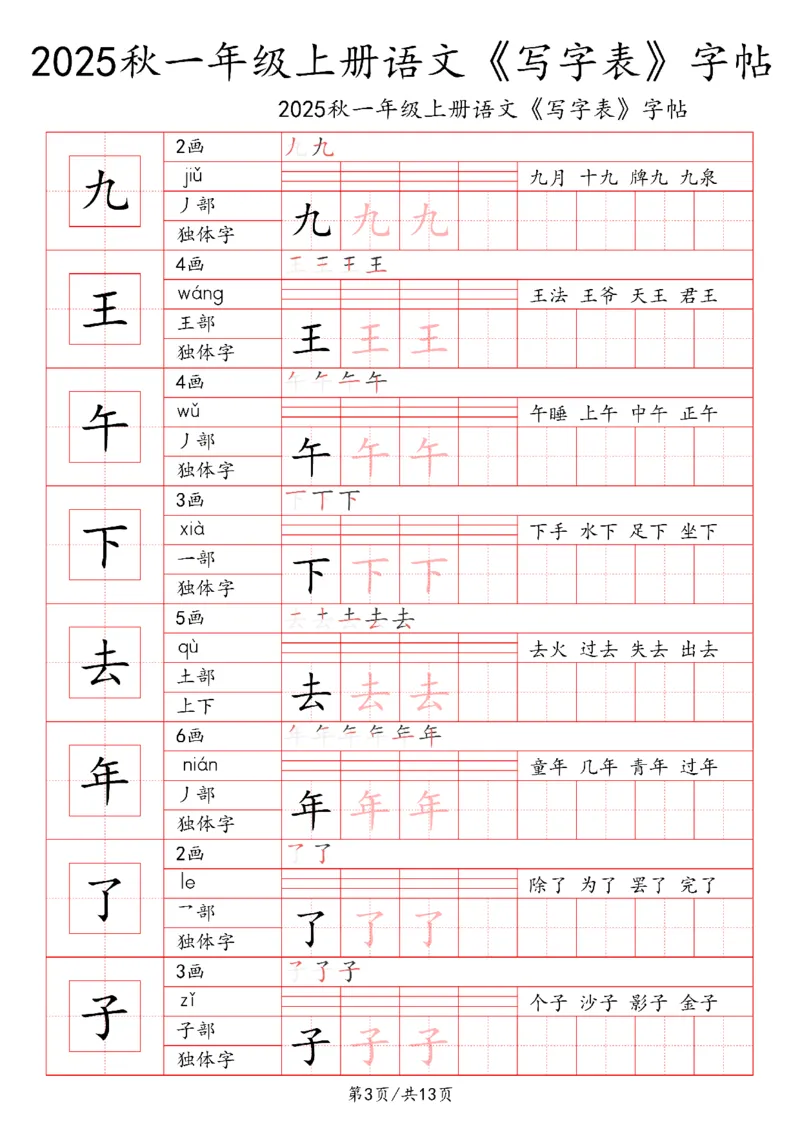 2025秋一年级上册语文《写字表》字帖
2025秋一年级上册语文《写字表》字帖
九
2画
jiǔ
丿部
独体字
九 九
九月 十九 牌九 九泉
九 九 九
王
4画
wáng
王部
独体字
王 王 王 王
王法 王爷 天王 君王
王 王 王
午
4画
wǔ
丿部
独体字
午 午 午 午
午睡 上午 中午 正午
午 午 午
下
3画
xià
一部
独体字
下 下 下
下手 水下 足下 坐下
下 下 下
去
5画
qù
土部
上下
去 去 去 去 去
去火 过去 失去 出去
去 去 去
年
6画
nián
丿部
独体字
年 年 年 年 年 年
童年 几年 青年 过年
年 年 年
了
2画
le
乛部
独体字
了 了
除了 为了 罢了 完了
了 了 了
子
3画
zǐ
子部
独体字
子 了 子
个子 沙子 影子 金子
子 子 子
第3页/共13页